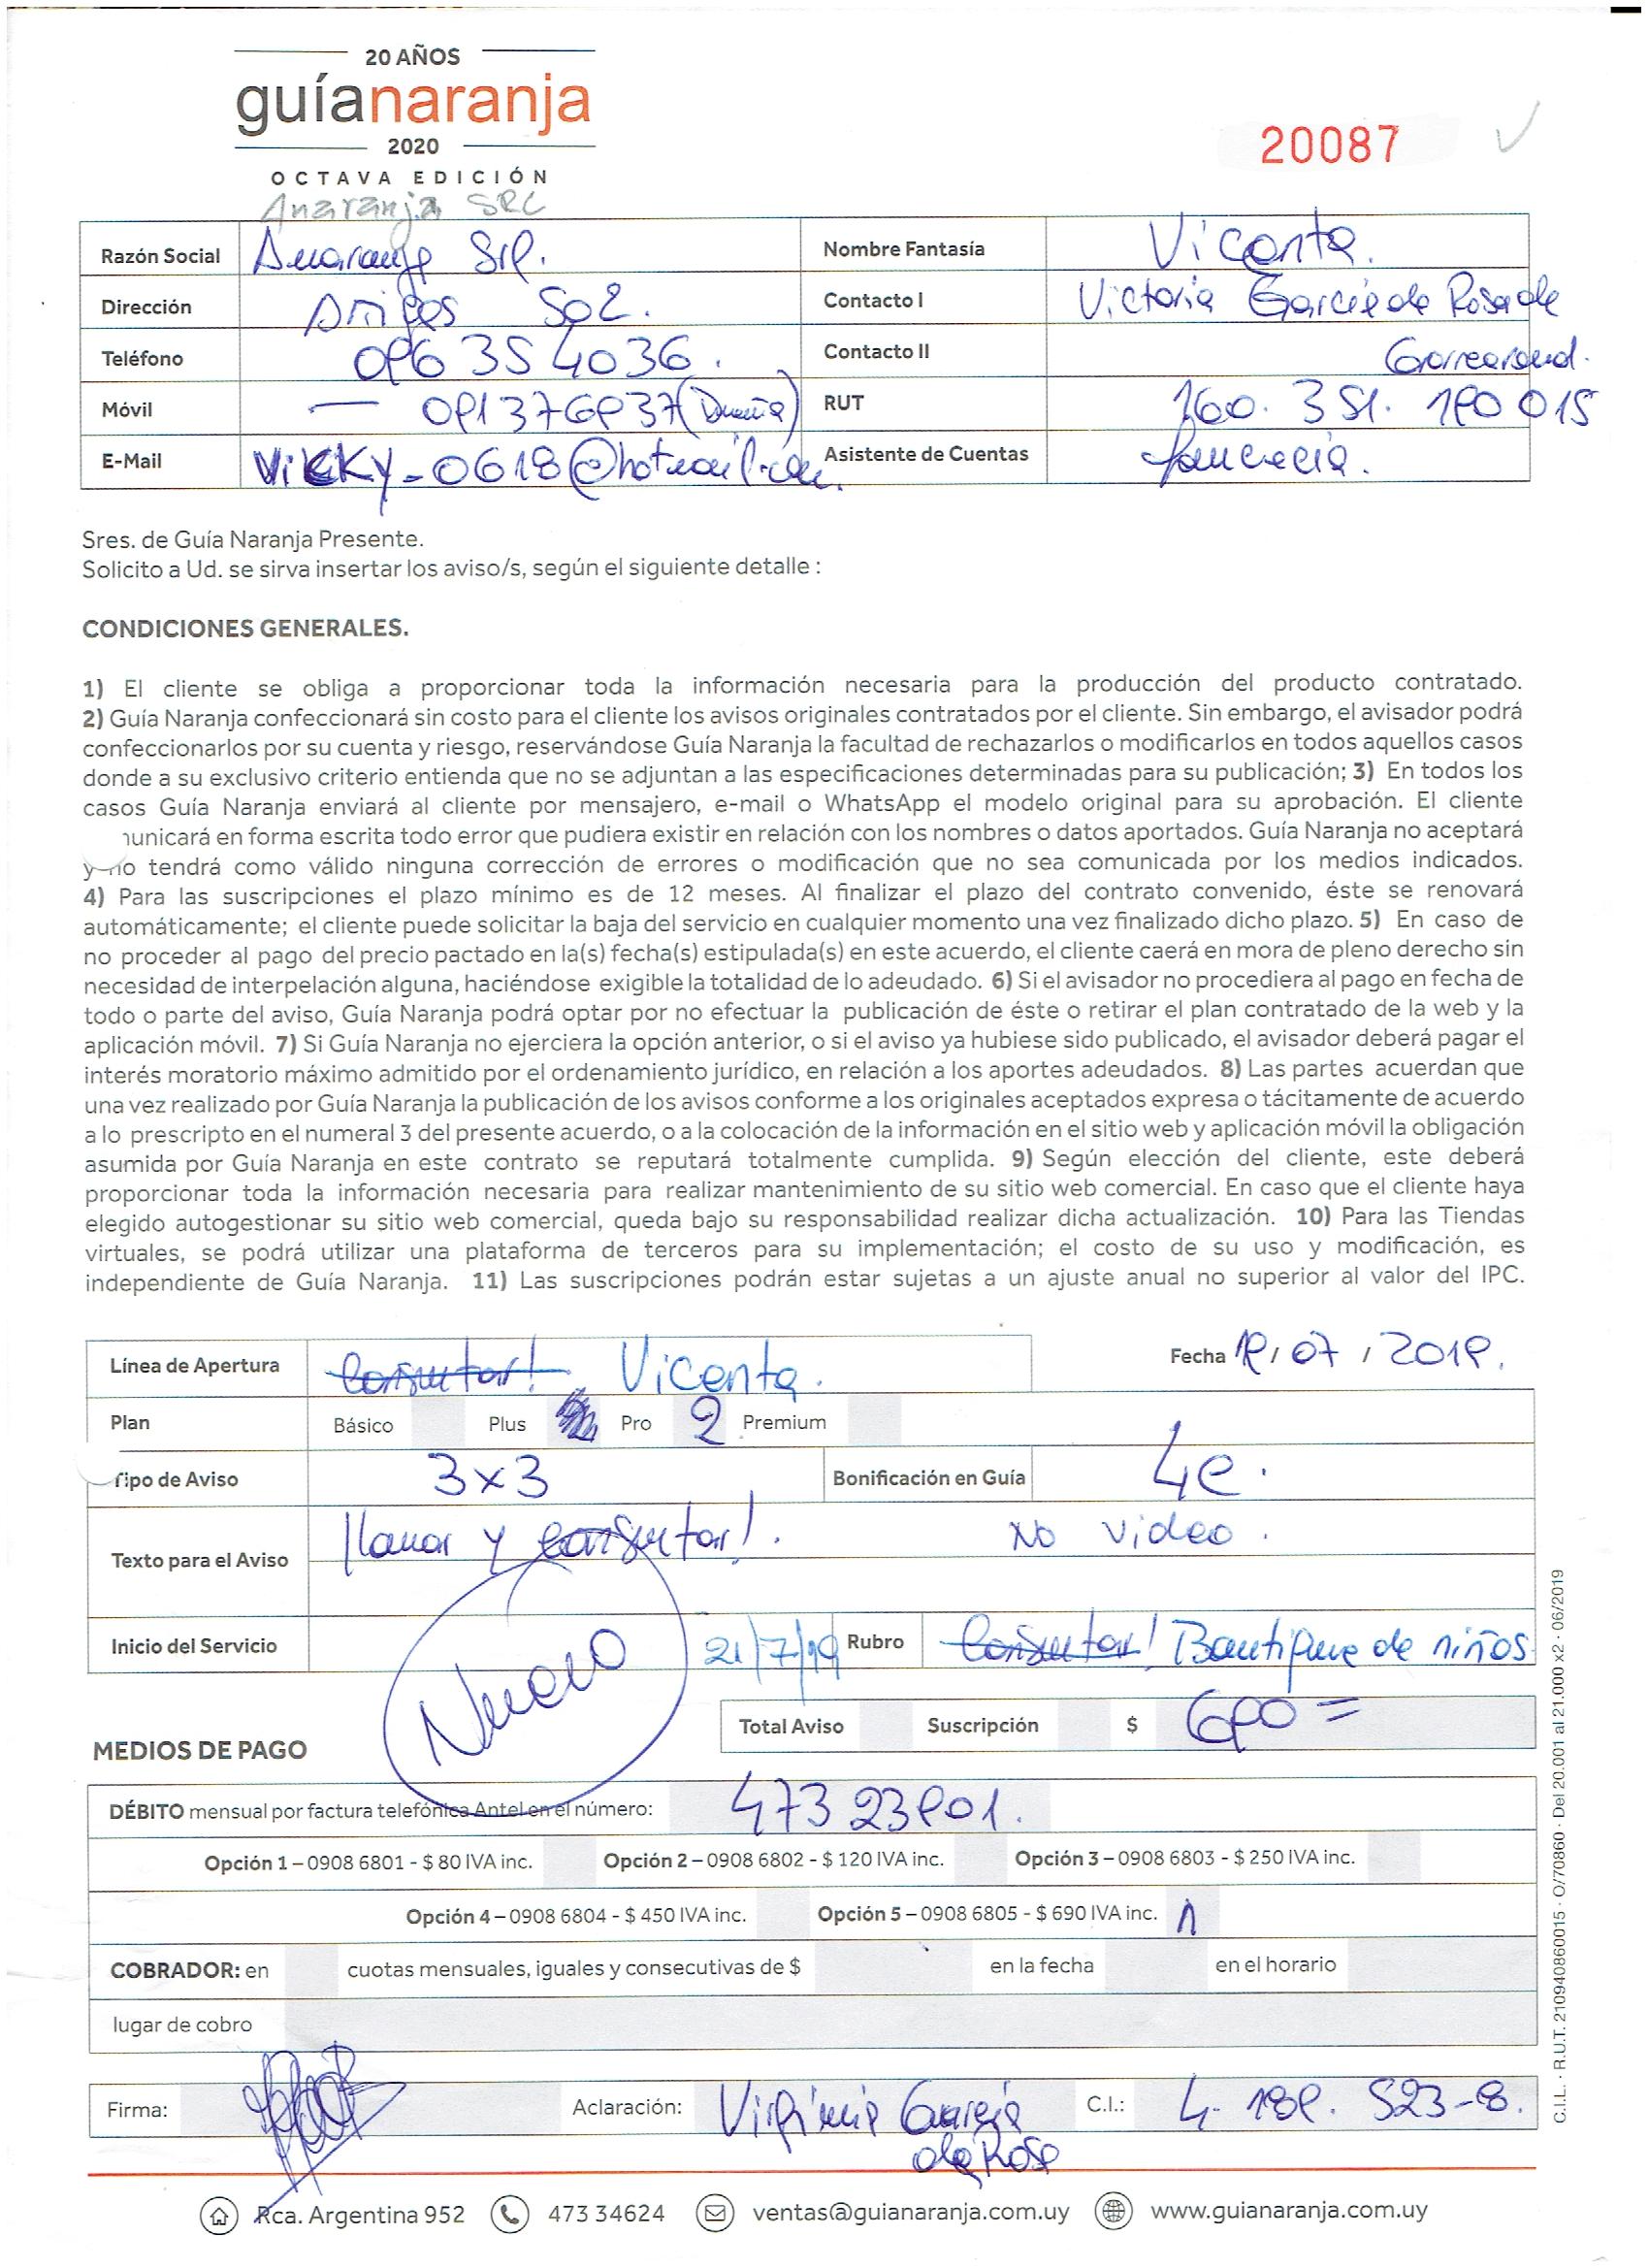 20 AÑOS
guíanaranja
2020
OCTAVA EDICIÓN
20087
Anaranja SRL
Razón Social Anaranja Srl. Nombre Fantasía Vicenta.
Dirección Artigas 502. Contacto I Victoria García de Rosa de
Teléfono 096 354036. Contacto II
Móvil — 091376937 (Dueña) RUT 160. 351. 190 015
E-Mail vicky_0618@hotmail.com. Asistente de Cuentas
Sres. de Guía Naranja Presente.
Solicito a Ud. se sirva insertar los aviso/s, según el siguiente detalle :
CONDICIONES GENERALES.
1) El cliente se obliga a proporcionar toda la información necesaria para la producción del producto contratado.
2) Guía Naranja confeccionará sin costo para el cliente los avisos originales contratados por el cliente. Sin embargo, el avisador podrá
confeccionarlos por su cuenta y riesgo, reservándose Guía Naranja la facultad de rechazarlos o modificarlos en todos aquellos casos
donde a su exclusivo criterio entienda que no se adjuntan a las especificaciones determinadas para su publicación; 3) En todos los
casos Guía Naranja enviará al cliente por mensajero, e-mail o WhatsApp el modelo original para su aprobación. El cliente
unicará en forma escrita todo error que pudiera existir en relación con los nombres o datos aportados. Guía Naranja no aceptará
y no tendrá como válido ninguna corrección de errores o modificación que no sea comunicada por los medios indicados.
4) Para las suscripciones el plazo mínimo es de 12 meses. Al finalizar el plazo del contrato convenido, éste se renovará
automáticamente; el cliente puede solicitar la baja del servicio en cualquier momento una vez finalizado dicho plazo. 5) En caso de
no proceder al pago del precio pactado en la(s) fecha(s) estipulada(s) en este acuerdo, el cliente caerá en mora de pleno derecho sin
necesidad de interpelación alguna, haciéndose exigible la totalidad de lo adeudado. 6) Si el avisador no procediera al pago en fecha de
todo o parte del aviso, Guía Naranja podrá optar por no efectuar la publicación de éste o retirar el plan contratado de la web y la
aplicación móvil. 7) Si Guía Naranja no ejerciera la opción anterior, o si el aviso ya hubiese sido publicado, el avisador deberá pagar el
interés moratorio máximo admitido por el ordenamiento jurídico, en relación a los aportes adeudados. 8) Las partes acuerdan que
una vez realizado por Guía Naranja la publicación de los avisos conforme a los originales aceptados expresa o tácitamente de acuerdo
a lo prescripto en el numeral 3 del presente acuerdo, o a la colocación de la información en el sitio web y aplicación móvil la obligación
asumida por Guía Naranja en este contrato se reputará totalmente cumplida. 9) Según elección del cliente, este deberá
proporcionar toda la información necesaria para realizar mantenimiento de su sitio web comercial. En caso que el cliente haya
elegido autogestionar su sitio web comercial, queda bajo su responsabilidad realizar dicha actualización. 10) Para las Tiendas
virtuales, se podrá utilizar una plataforma de terceros para su implementación; el costo de su uso y modificación, es
independiente de Guía Naranja. 11) Las suscripciones podrán estar sujetas a un ajuste anual no superior al valor del IPC.
Línea de Apertura Consultar! Vicenta. Fecha 19/07/2019.
Plan Básico Plus Pro 2 Premium
Tipo de Aviso 3x3 Bonificación en Guía 4e.
Texto para el Aviso llamar y consultar!. No video.
Inicio del Servicio 21/7/19 Rubro Consultar! Boutique de niños
Nuevo
Total Aviso Suscripción $ 690=
MEDIOS DE PAGO
DÉBITO mensual por factura telefónica Antel en el número: 473 23901.
Opción 1 – 0908 6801 - $ 80 IVA inc. Opción 2 – 0908 6802 - $ 120 IVA inc. Opción 3 – 0908 6803 - $ 250 IVA inc.
Opción 4 – 0908 6804 - $ 450 IVA inc. Opción 5 – 0908 6805 - $ 690 IVA inc. 1
COBRADOR: en cuotas mensuales, iguales y consecutivas de $ en la fecha en el horario
lugar de cobro
Firma: Aclaración: Virginia García C.I.: 4. 189. 523-8.
de Rosa
Rca. Argentina 952 473 34624 ventas@guianaranja.com.uy www.guianaranja.com.uy
C.I.L. · R.U.T. 210940860015 · O/70860 · Del 20.001 al 21.000 x2 · 06/2019